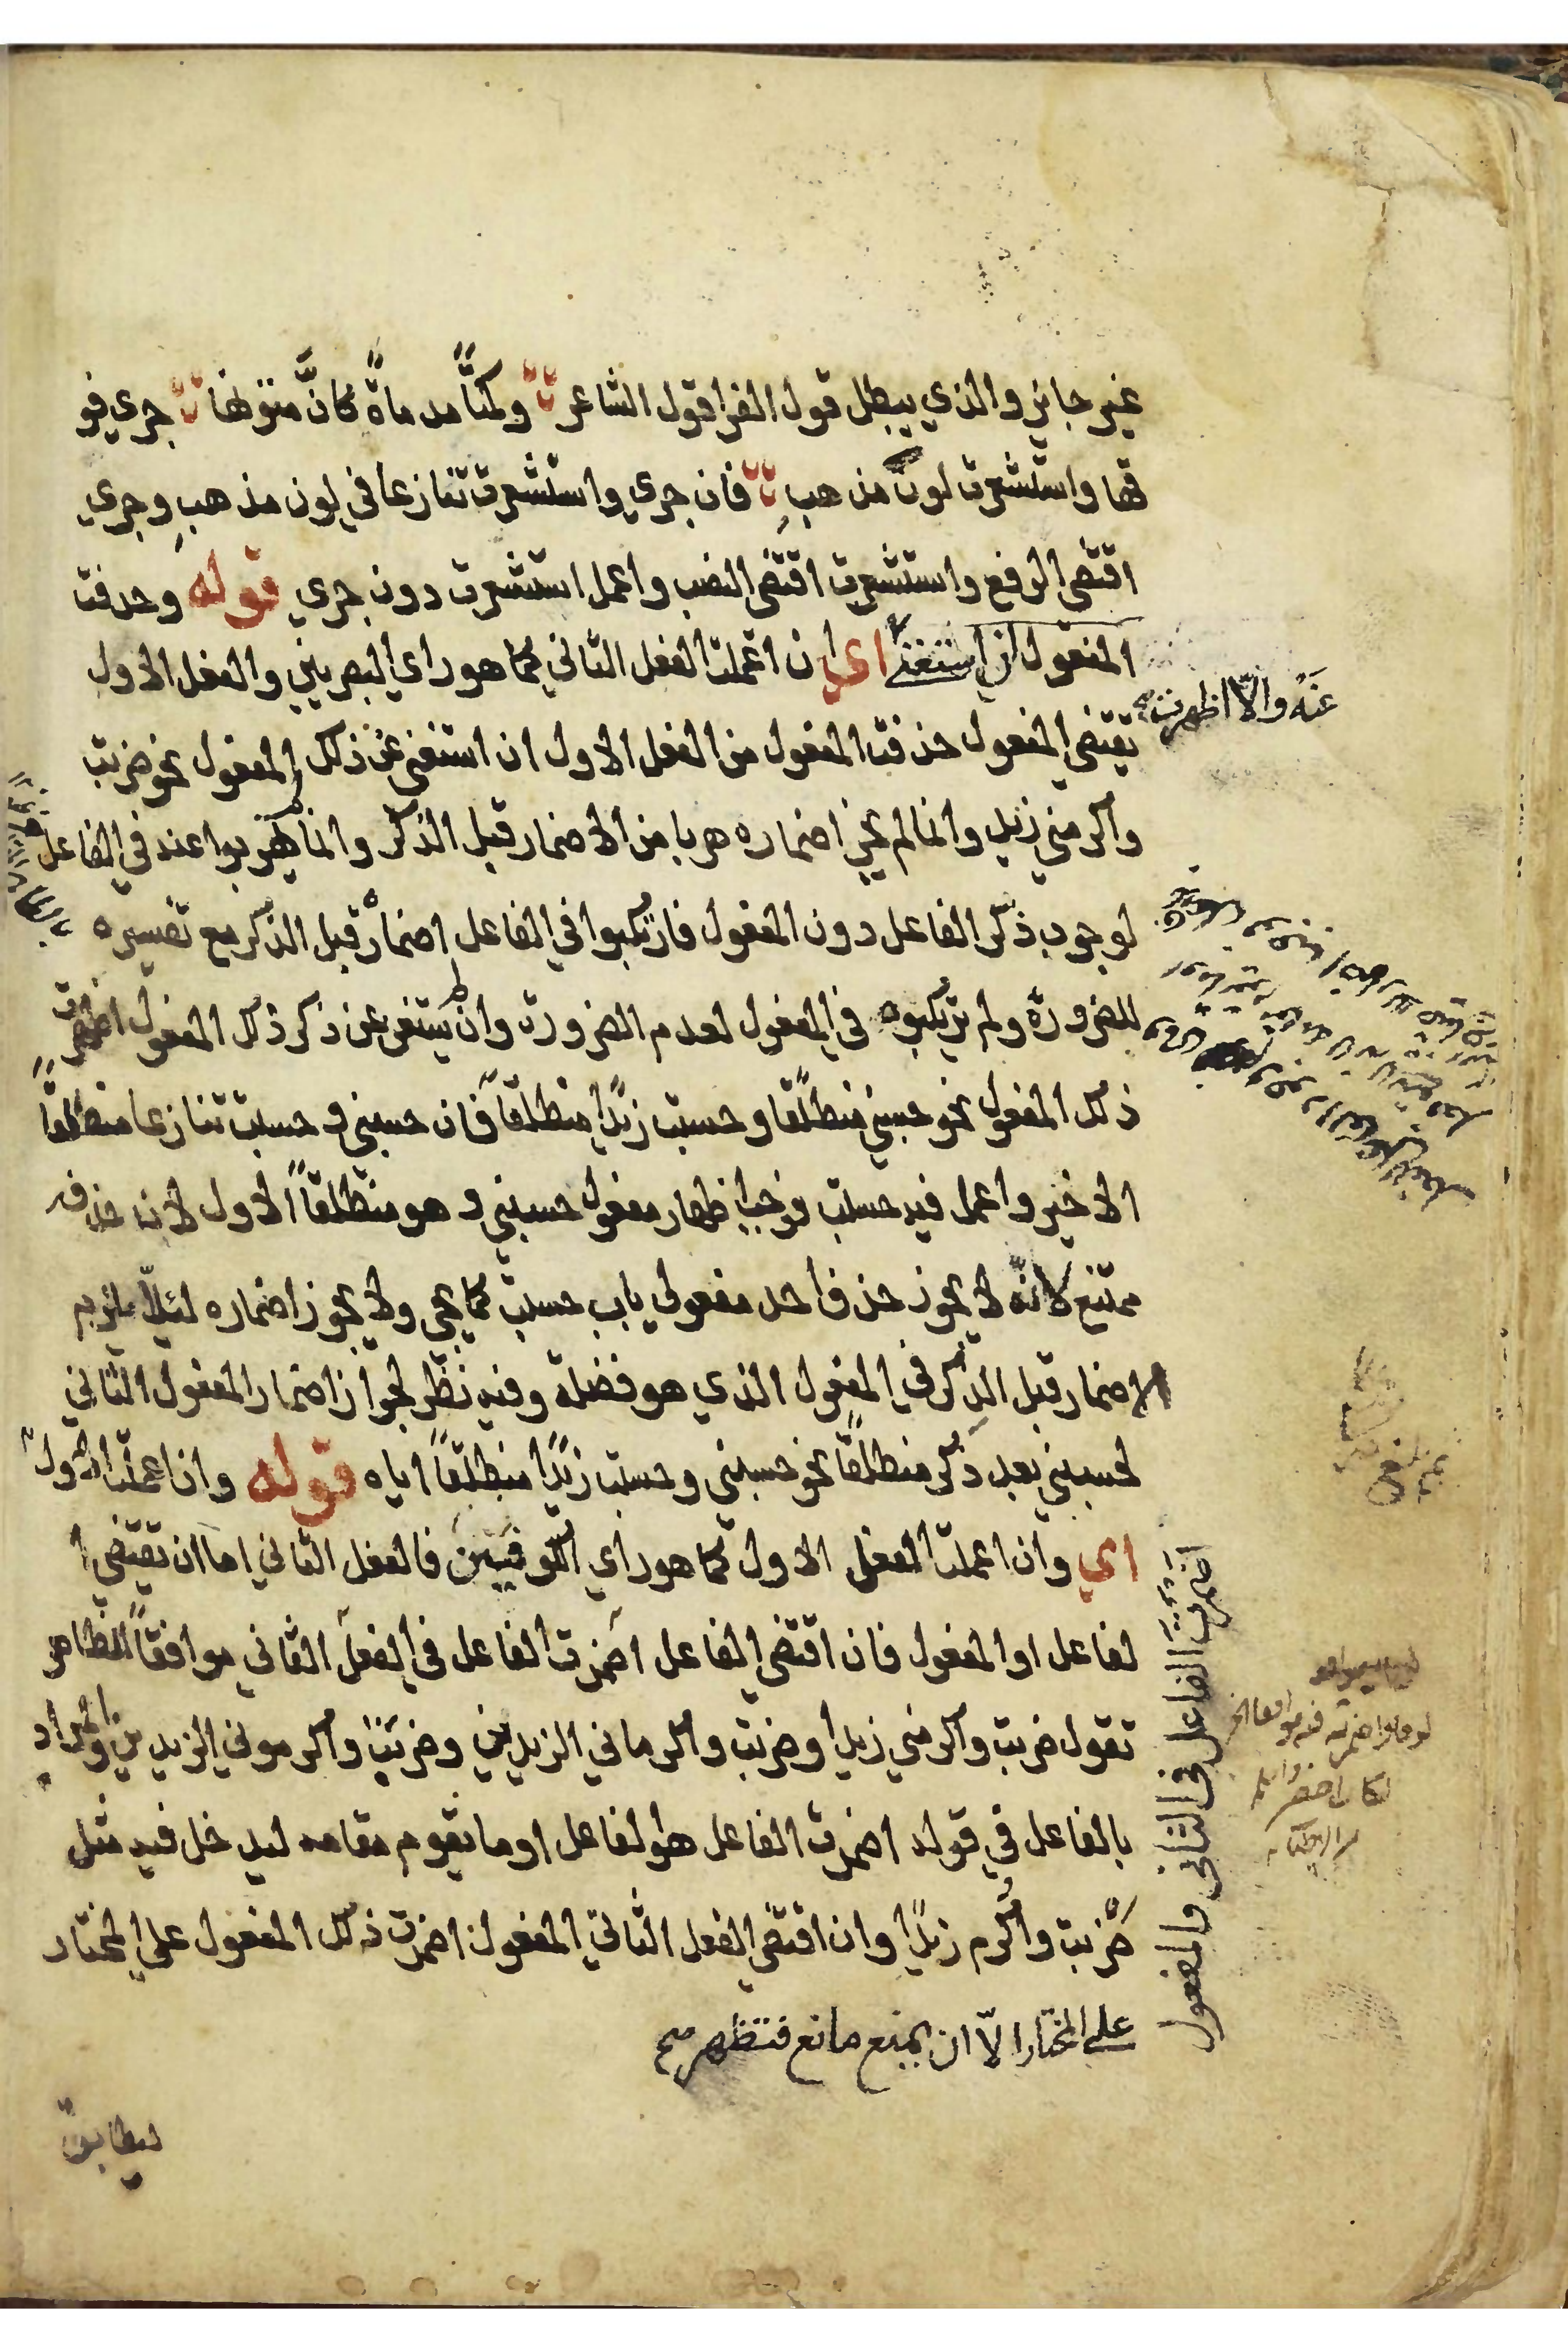 غير جايز والذي يبطل قول الفرا قول الشاعر وكمتًا مدماةً كانَّ متونها جري فو
قها واستشعرت لون مذهبِ فان جري واستشعرت تنازعا في لون مذهبِ وجري
اقتضي الرفع واستشعرت اقتضي النصب واعمل استشعرت دون جري قوله وحذفت
المفعول ان استغني اي ان اعملت الفعل الثاني كما هو راي البصريين والفعل الاول
عنه والّا اظهرت صح
يقتضي المفعول حذفت المفعول من الفعل الاول ان استغني عن ذلك المفعول نحو ضربت
واكرمني زيد وانما لم يجز اضماره هربا من الاضمار قبل الذكر وانما لم يهربوا عنه في الفاعل
لوجوب ذكر الفاعل دون المفعول فارتكبوا في الفاعل اضمار قبل الذكر مع تفسيره
للضرورة ولم يرتكبوه في المفعول لعدم الضرورة وان لم يستغن عن ذكر ذلك المفعول اظهرت
ذلك المفعول نحو حسبني منطلقًا وحسبت زيدًا منطلقًا فان حسبني وحسبت تنازعا منطلقًا
الاخير واعمل فيه حسبت فوجب اظهار مفعول حسبني وهو منطلقًا الاول لان حذفه
ممتنع لانّه لا يجوز حذف احد مفعولي باب حسبت كما يجي ولا يجوز اضماره لئلّا يلزم
الاضمار قبل الذكر في المفعول الذي هو فضلة وفيه نظر لجواز اضمار المفعول الثاني
لحسبني بعد ذكر منطلقًا نحو حسبني وحسبت زيدًا منطلقًا اياه قوله وان اعملت الاول
اي وان اعملت الفعل الاول كما هو راي الكوفيين فالفعل الثاني اما ان يقتضي ا
لفاعل او المفعول فان اقتضي الفاعل اضمرت الفاعل في الفعل الثاني موافقًا للظاهر
تقول ضربت واكرمني زيدا وضربت واكرماني الزيدين وضربت واكرموني الزيدين والمراد
بالفاعل في قوله اضمرت الفاعل هو الفاعل او ما يقوم مقامه ليدخل فيه مثل
ضربت واُكرم زيدًا وان اقتضي الفعل الثاني المفعول اضمرت ذلك المفعول علي المختار
علي المختار الّا ان يمنع مانع فتظهر صح
اضمرت الفاعل في الثاني والمفعول
ليطابق